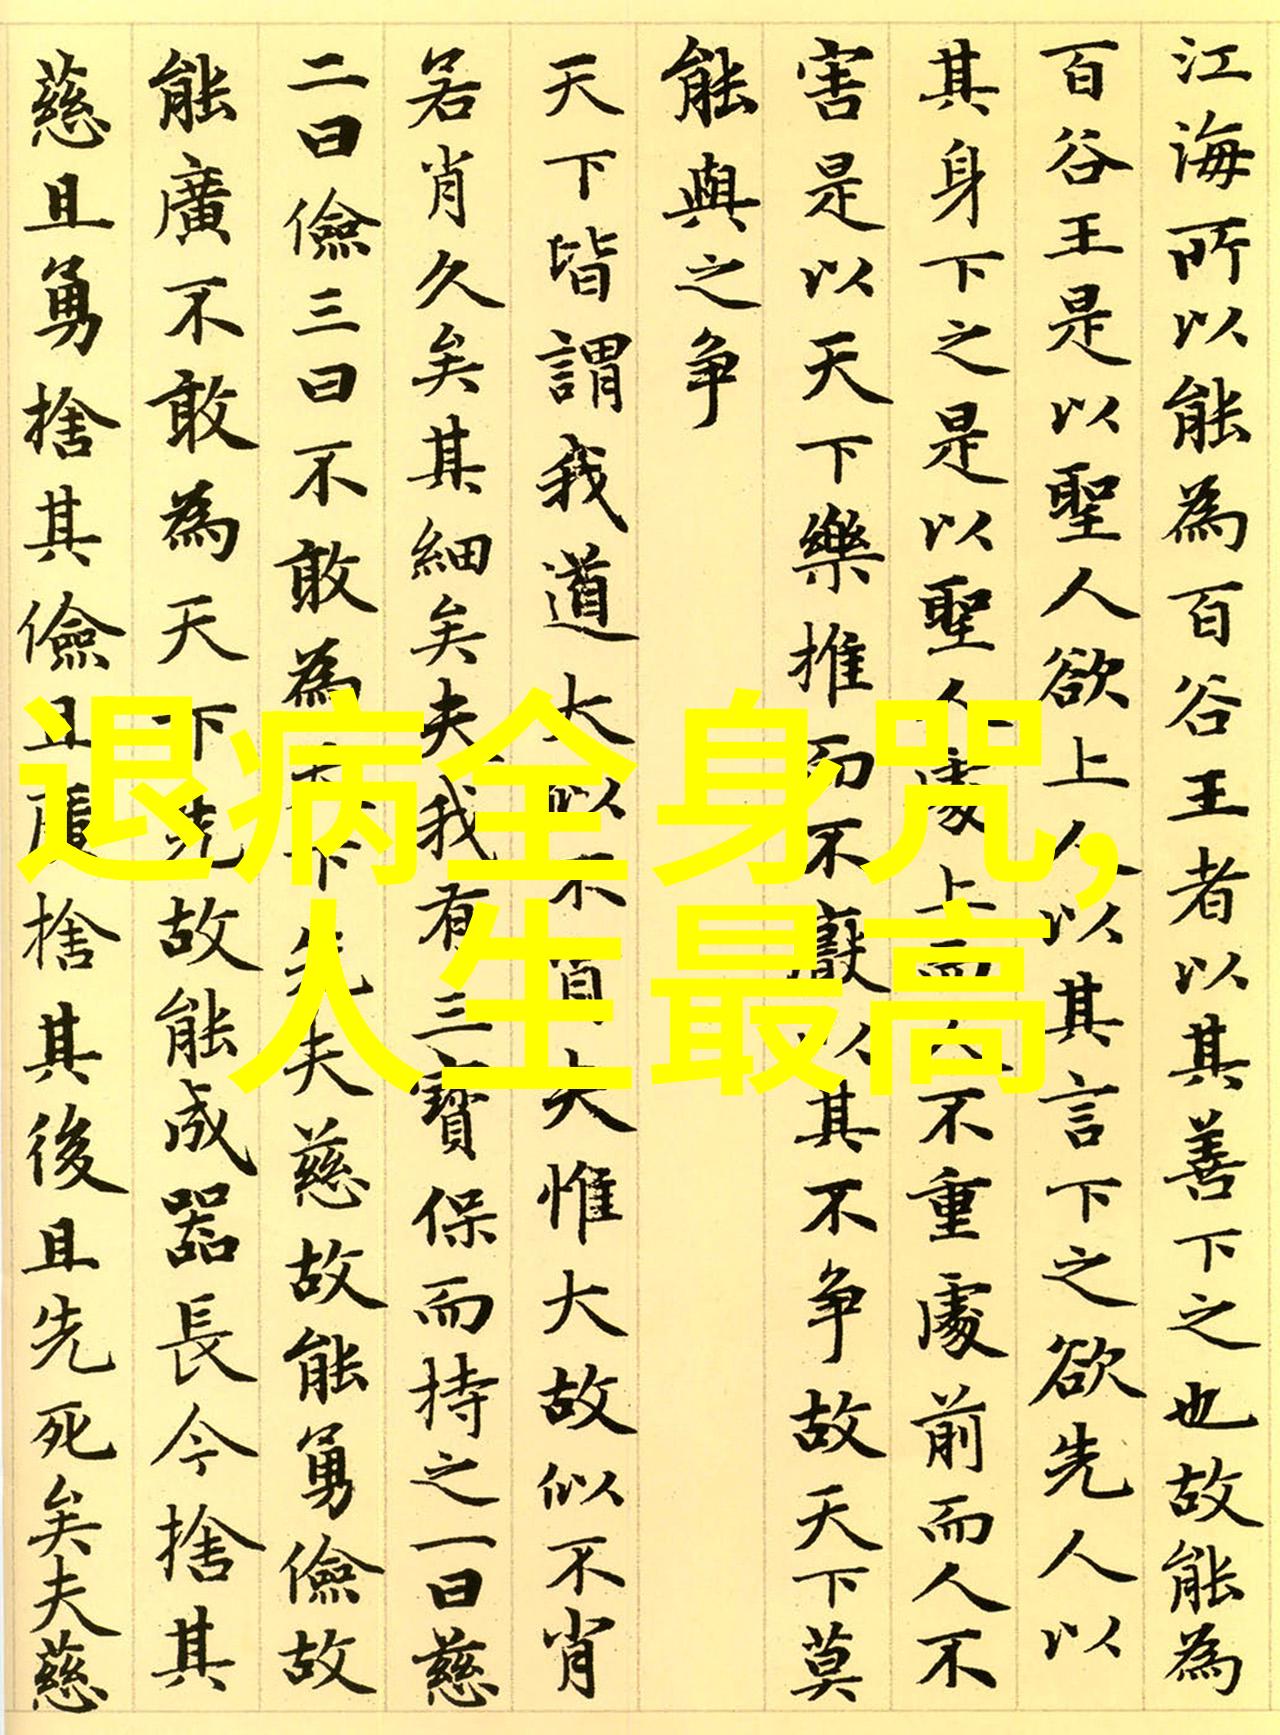 江海所以能為百谷王者以其善下之也故能為
百谷王是以聖人欲上人以其言下之欲先人以
其身下之是以聖人處上而人不重處前而人不
害是以天下樂推而不厭以其不争故天下莫
能與之争
天下皆謂我道大似不肖夫惟大故似不肖
若肖久矣其細矣夫我有三寶保而持之一曰慈
二曰儉三曰不敢為天下先夫慈故能勇儉故
能廣不敢為天下先故能成器長今捨其
慈且勇捨其儉且廣捨其後且先死矣夫慈
退病全身咒,
人生最高